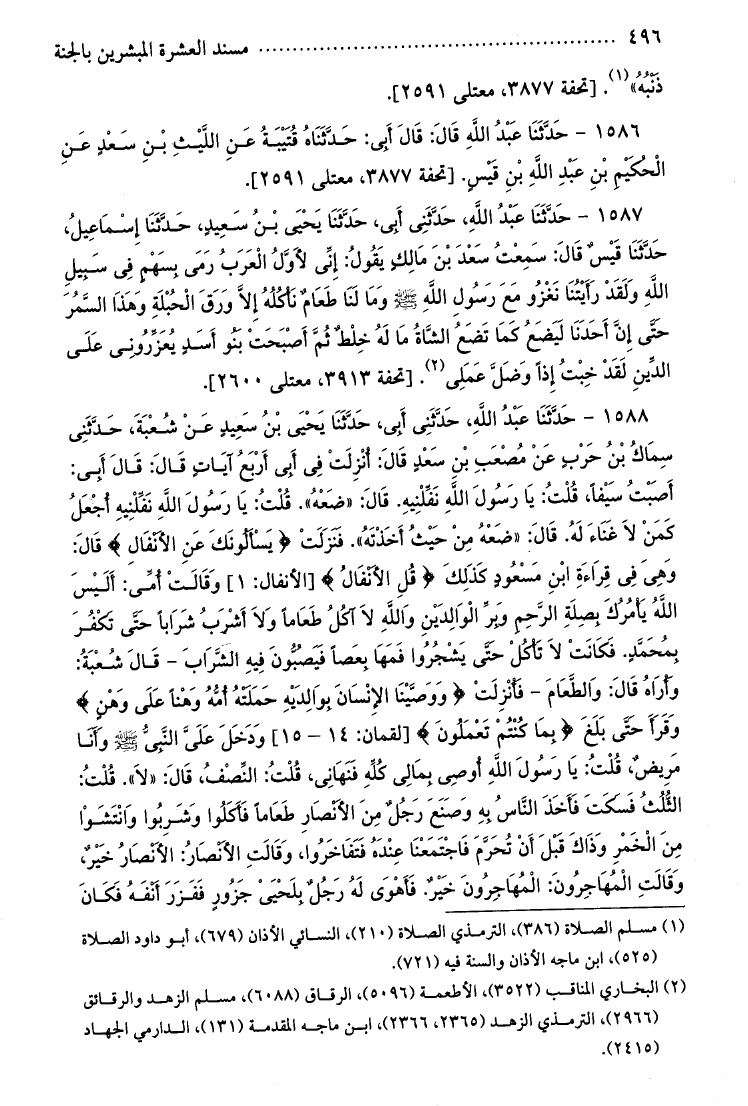 ٤٩٦ ................................................ مسند العشرة المبشرين بالجنة
ذَنْبُهُ»(١). [تحفة ٣٨٧٧، معتلى ٢٥٩١].
١٥٨٦ - حَدَّثَنَا عَبْدُ اللَّهِ قَالَ: قَالَ أَبِى: حَدَّثَنَاهُ قُتَيْبَةُ عَنِ اللَّيْثِ بْنِ سَعْدٍ عَنِ
الْحُكَيْمِ بْنِ عَبْدِ اللَّهِ بْنِ قَيْسٍ. [تحفة ٣٨٧٧، معتلى ٢٥٩١].
١٥٨٧ - حَدَّثَنَا عَبْدُ اللَّهِ، حَدَّثَنِى أَبِى، حَدَّثَنَا يَحْيَى بْنُ سَعِيدٍ، حَدَّثَنَا إِسْمَاعِيلُ،
حَدَّثَنَا قَيْسٌ قَالَ: سَمِعْتُ سَعْدَ بْنَ مَالِكٍ يَقُولُ: إِنِّى لأَوَّلُ الْعَرَبِ رَمَى بِسَهْمٍ فِى سَبِيلِ
اللَّهِ وَلَقَدْ رَأَيْتُنَا نَغْزُو مَعَ رَسُولِ اللَّهِ ﷺ وَمَا لَنَا طَعَامٌ نَأْكُلُهُ إِلاَّ وَرَقَ الْحُبْلَةِ وَهَذَا السَّمُرَ
حَتَّى إِنَّ أَحَدَنَا لَيَضَعُ كَمَا تَضَعُ الشَّاةُ مَا لَهُ خِلْطٌ ثُمَّ أَصْبَحَتْ بَنُو أَسَدٍ يُعَزِّرُونِى عَلَى
الدِّينِ لَقَدْ خِبْتُ إِذًا وَضَلَّ عَمَلِى(٢). [تحفة ٣٩١٣، معتلى ٢٦٠٠].
١٥٨٨ - حَدَّثَنَا عَبْدُ اللَّهِ، حَدَّثَنِى أَبِى، حَدَّثَنَا يَحْيَى بْنُ سَعِيدٍ عَنْ شُعْبَةَ، حَدَّثَنِى
سِمَاكُ بْنُ حَرْبٍ عَنْ مُصْعَبِ بْنِ سَعْدٍ قَالَ: أُنْزِلَتْ فِى أَبِى أَرْبَعُ آيَاتٍ قَالَ: قَالَ أَبِى:
أَصَبْتُ سَيْفًا، قُلْتُ: يَا رَسُولَ اللَّهِ نَفِّلْنِيهِ. قَالَ: «ضَعْهُ». قُلْتُ: يَا رَسُولَ اللَّهِ نَفِّلْنِيهِ أُجْعَلُ
كَمَنْ لاَ غَنَاءَ لَهُ. قَالَ: «ضَعْهُ مِنْ حَيْثُ أَخَذْتَهُ». فَنَزَلَتْ ﴿ يَسْأَلُونَكَ عَنِ الأَنْفَالِ ﴾ قَالَ:
وَهِىَ فِى قِرَاءَةِ ابْنِ مَسْعُودٍ كَذَلِكَ ﴿ قُلِ الأَنْفَالُ ﴾ [الأنفال: ١] وَقَالَتْ أُمِّى: أَلَيْسَ
اللَّهُ يَأْمُرُكَ بِصِلَةِ الرَّحِمِ وَبِرِّ الْوَالِدَيْنِ وَاللَّهِ لاَ آكُلُ طَعَامًا وَلاَ أَشْرَبُ شَرَابًا حَتَّى تَكْفُرَ
بِمُحَمَّدٍ. فَكَانَتْ لاَ تَأْكُلُ حَتَّى يَشْجُرُوا فَمَهَا بِعَصًا فَيَصُبُّونَ فِيهِ الشَّرَابَ - قَالَ شُعْبَةُ:
وَأُرَاهُ قَالَ: وَالطَّعَامَ - فَأُنْزِلَتْ ﴿ وَوَصَّيْنَا الإِنْسَانَ بِوَالِدَيْهِ حَمَلَتْهُ أُمُّهُ وَهْنًا عَلَى وَهْنٍ ﴾
وَقَرَأَ حَتَّى بَلَغَ ﴿ بِمَا كُنْتُمْ تَعْمَلُونَ ﴾ [لقمان: ١٤ - ١٥] وَدَخَلَ عَلَىَّ النَّبِىُّ ﷺ وَأَنَا
مَرِيضٌ، قُلْتُ: يَا رَسُولَ اللَّهِ أُوصِى بِمَالِى كُلِّهِ فَنَهَانِى، قُلْتُ: النِّصْفُ، قَالَ: «لاَ». قُلْتُ:
الثُّلُثُ فَسَكَتَ فَأَخَذَ النَّاسُ بِهِ وَصَنَعَ رَجُلٌ مِنَ الأَنْصَارِ طَعَامًا فَأَكَلُوا وَشَرِبُوا وَانْتَشَوْا
مِنَ الْخَمْرِ وَذَاكَ قَبْلَ أَنْ تُحَرَّمَ فَاجْتَمَعْنَا عِنْدَهُ فَتَفَاخَرُوا، وَقَالَتِ الأَنْصَارُ: الأَنْصَارُ خَيْرٌ،
وَقَالَتِ الْمُهَاجِرُونَ: الْمُهَاجِرُونَ خَيْرٌ. فَأَهْوَى لَهُ رَجُلٌ بِلَحْيَىْ جَزُورٍ فَفَزَرَ أَنْفَهُ فَكَانَ
(١) مسلم الصلاة (٣٨٦)، الترمذي الصلاة (٢١٠)، النسائي الأذان (٦٧٩)، أبو داود الصلاة
(٥٢٥)، ابن ماجه الأذان والسنة فيه (٧٢١).
(٢) البخاري المناقب (٣٥٢٢)، الأطعمة (٥٠٩٦)، الرقاق (٦٠٨٨)، مسلم الزهد والرقائق
(٢٩٦٦)، الترمذي الزهد (٢٣٦٥، ٢٣٦٦)، ابن ماجه المقدمة (١٣١)، الدارمي الجهاد
(٢٤١٥).